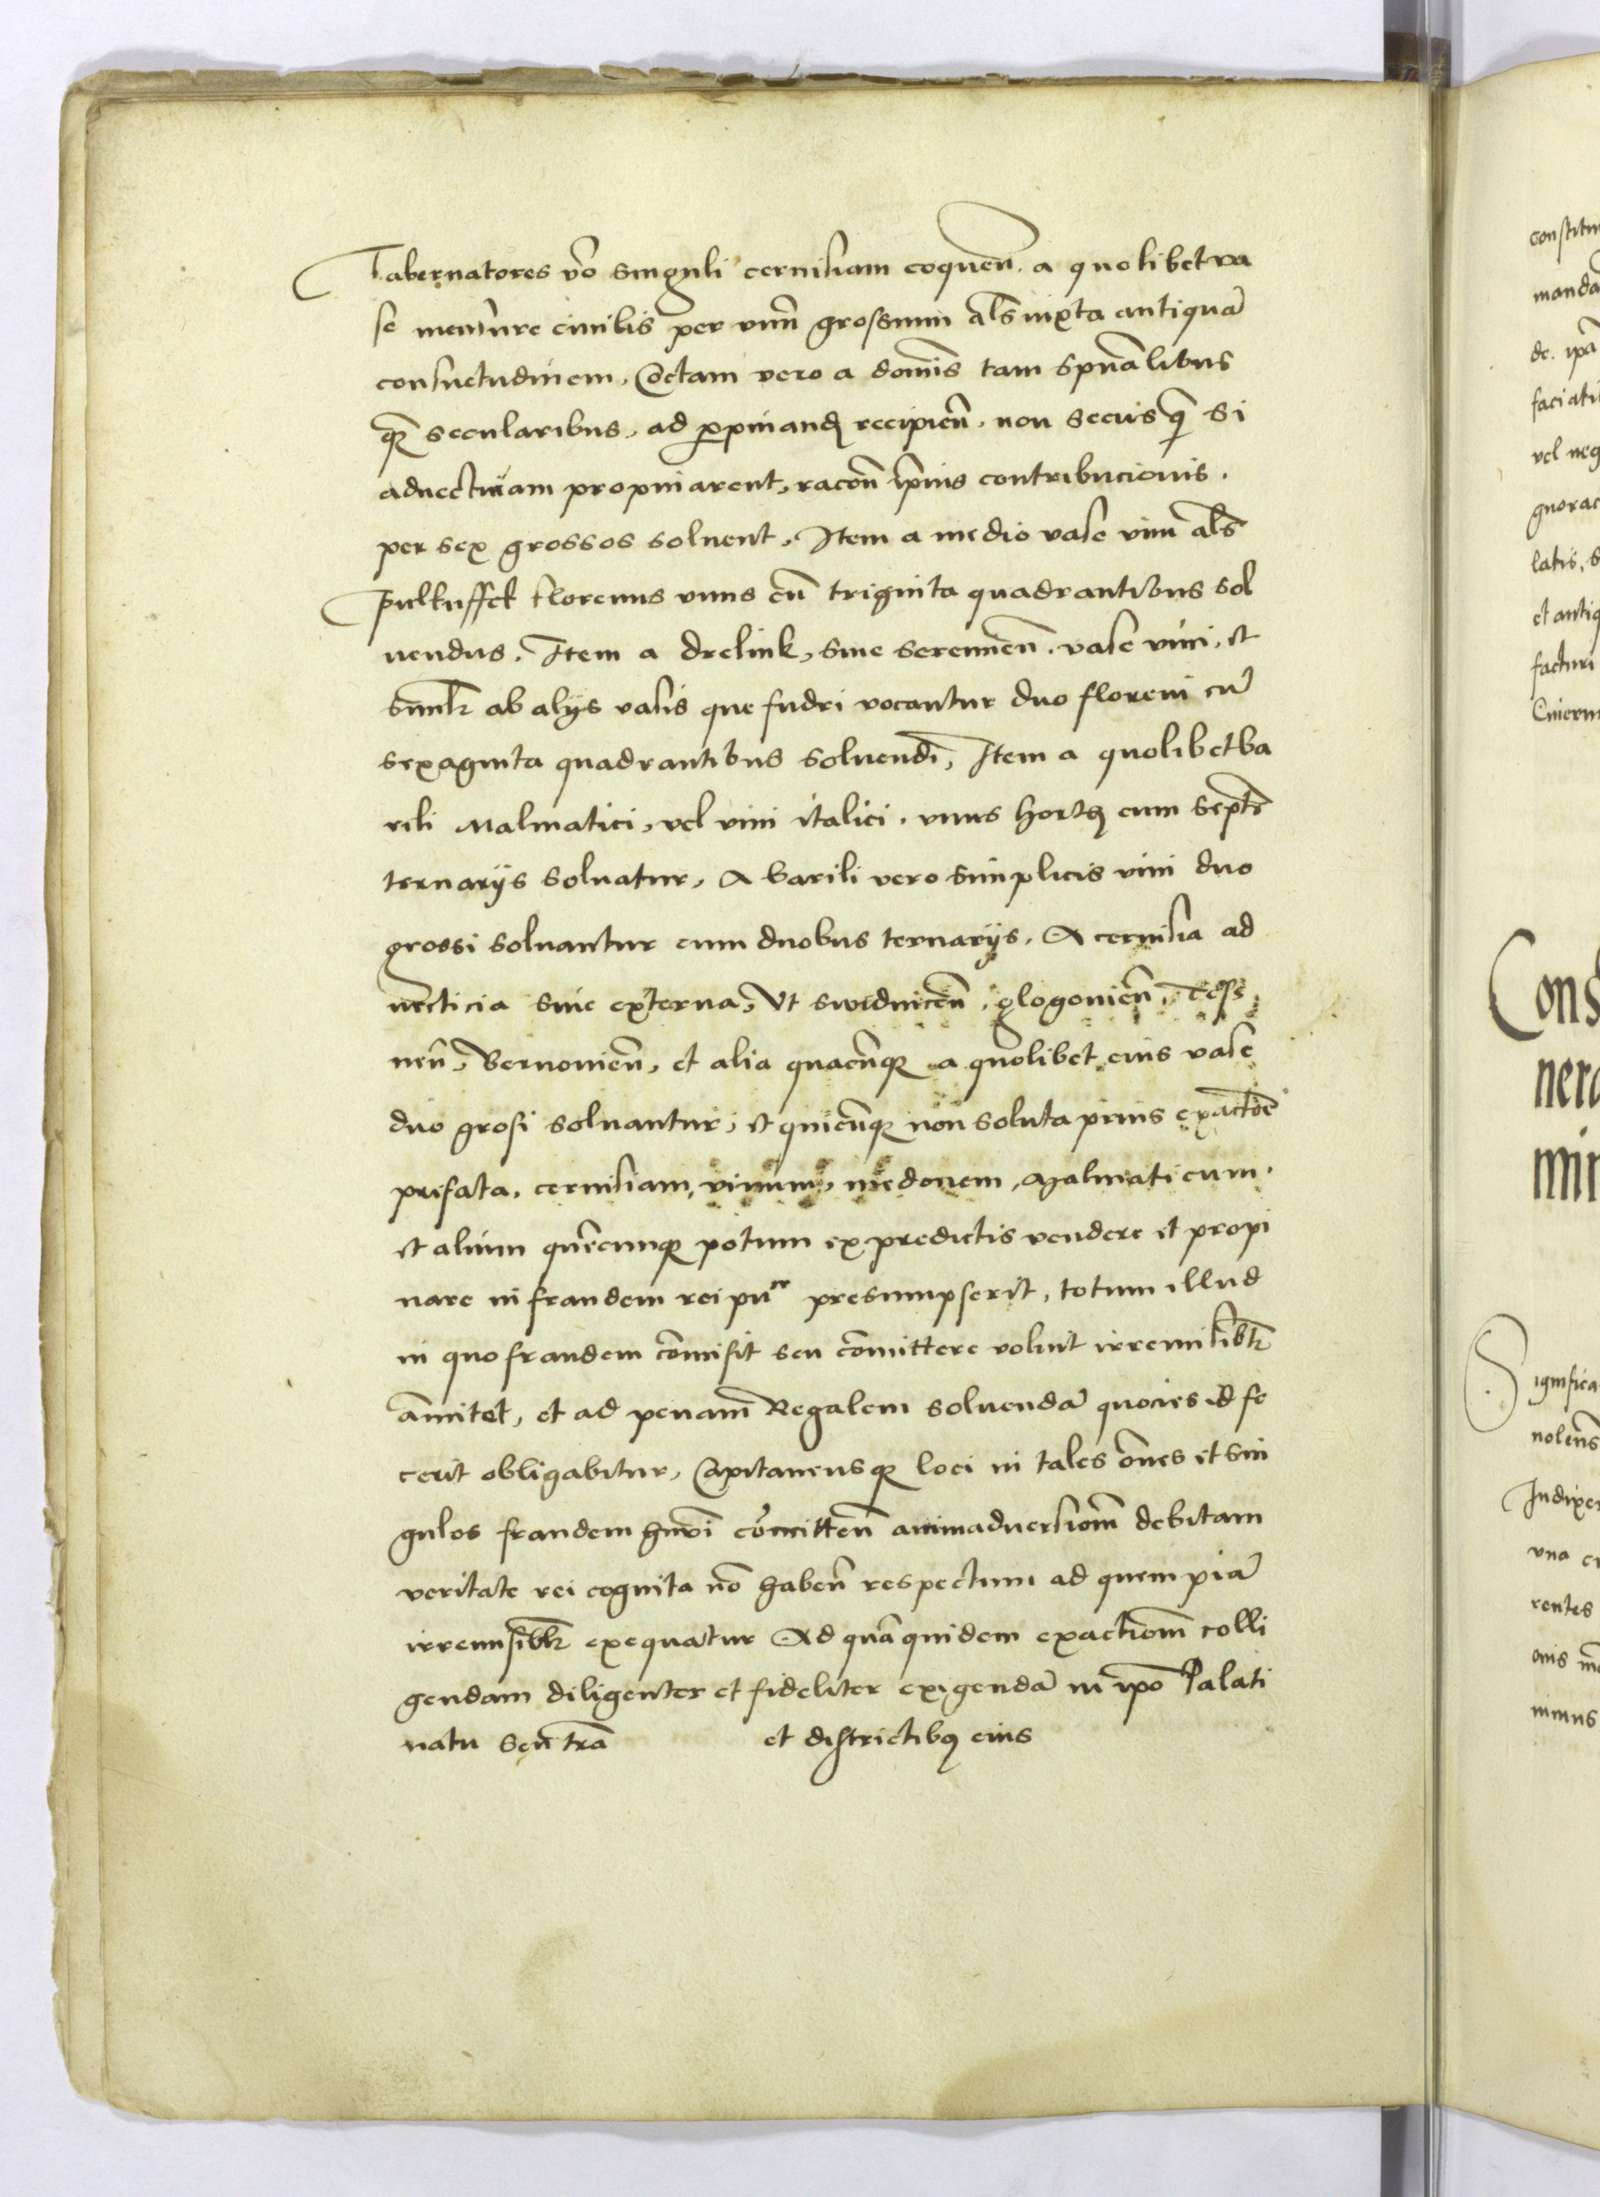 Tabernatores v̄o singuli ceruisiam coquen̄. a quolibet va
se mensure ciuilis per vnū grossum al̄s iuxta antiquā
consuetudinem, Coctam vero a domīs tam spūalibus
q̄ꝫ secularibus, ad ꝓpinandꝫ recipien̄. non secus q̄ꝫ si
aduectiuam propinarent, racōn hmōi contribucionis.
per sex grossos soluent, Item a medio vase vini al̄s
pulkuffek florenus vnus cū triginta quadrantibus sol
uendus. Item a drelink, siue seremien̄. vase vini, et
similr̄ ab alijs vasis que fudri vocantur duo floreni cū
sexaginta quadrantibus soluendi, Item a quolibet ba
rili Malmatici, vel vini italici. vnus hortꝫ cum septē
ternarijs soluatur, A barili vero simplicis vini duo
grossi soluantur cum duobus ternarijs. A ceruisia ad
uecticia siue externa, Vt swidnicen̄, glogonien̄, Cess
nen̄, Bernouien̄, et alia quacūqꝫ a quolibet eius vase
duo grosi soluantur, et quicūqꝫ non soluta prius exactōe
prefata, ceruisiam, vinum, medonem, Malmaticum.
et alium quēcunqꝫ potum ex predictis vendere et propi
nare in fraudem rei pu^ce presumpserit, totum illud
in quo fraudem cōmisit seu cōmittere voluit irremisibl̄r
āmitet, et ad penam Regalem soluendā quocies id fe
cerit obligabitur, Capitaneusqꝫ loci in tales ōnes et sin
gulos fraudem hmōi cōmitten̄ animaduersiom̄ debitam
veritate rei cognita nō haben̄ respectum ad quempiā
irremisibl̄r exequatur Ad quā quidem exactiom̄ colli
gendam diligenter et fideliter exigendā in ip̄o Palati
natu seu tr̄a et districtibꝫ eius
constitu
manda
de. ip̄a
faciati
vel neg
gnorac
latis, s
et antiq
facturi
Cons
nera
min
Significa
nolen̄s
Indixer
vna c
rentes
onis
minus